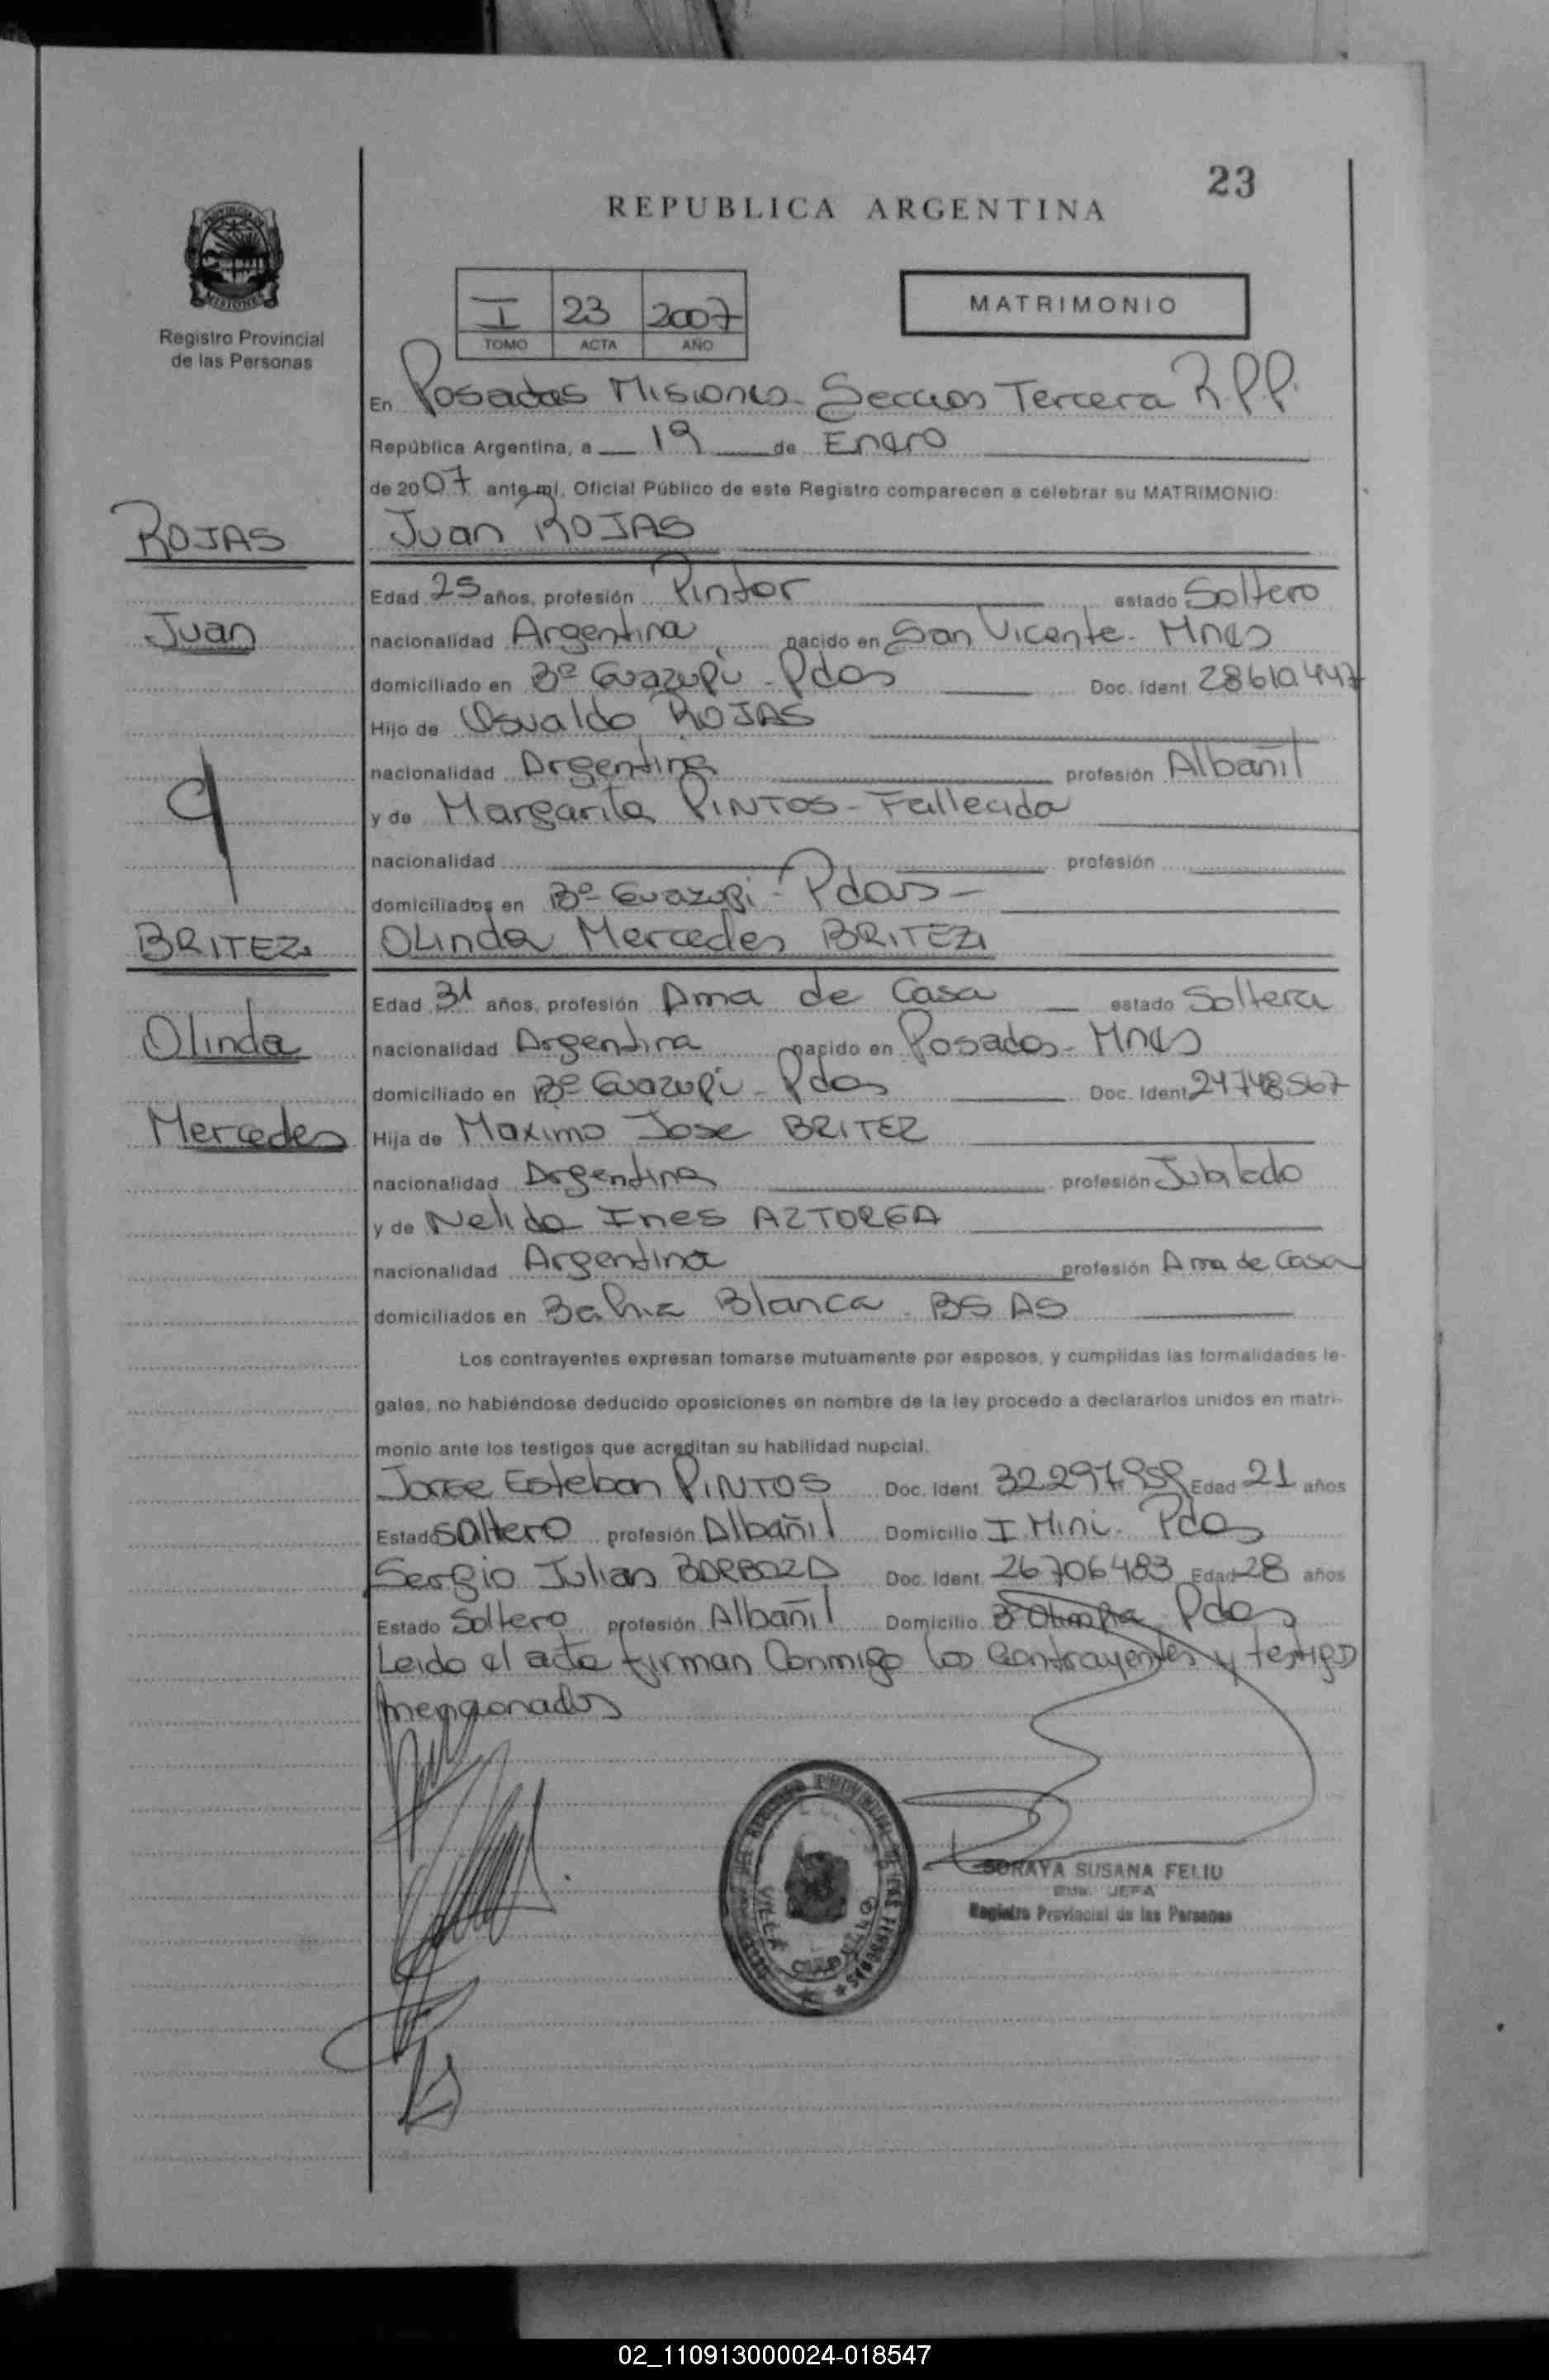 23
REPUBLICA ARGENTINA
PROVINCIA DE MISIONES
Registro Provincial
de las Personas
I 23 2007
TOMO ACTA AÑO
MATRIMONIO
En Posadas Misiones - Seccion Tercera R.P.P.
República Argentina, a 19 de Enero
de 2007 ante mí, Oficial Público de este Registro comparecen a celebrar su MATRIMONIO:
ROJAS Juan ROJAS
Edad 25 años, profesión Pintor estado Soltero
Juan nacionalidad Argentina nacido en San Vicente - Mnes
domiciliado en Bº Guazupi - Pdas Doc. Ident. 28610.447
Hijo de Osvaldo ROJAS
nacionalidad Argentina profesión Albañil
y de Margarita PINTOS - Fallecida
nacionalidad profesión
domiciliados en Bº Guazupi - Pdas -
BRITEZ OLinda Mercedes BRITEZ
Edad 31 años, profesión Ama de Casa estado Soltera
Olinda nacionalidad Argentina nacido en Posadas - Mnes
domiciliado en Bº Guazupi - Pdas Doc. Ident. 24748567
Mercedes Hija de Maximo Jose BRITEZ
nacionalidad Argentina profesión Jubilado
y de Nelida Ines AZTOREGA
nacionalidad Argentina profesión Ama de Casa
domiciliados en Bahia Blanca - BS AS
Los contrayentes expresan tomarse mutuamente por esposos, y cumplidas las formalidades le-
gales, no habiéndose deducido oposiciones en nombre de la ley procedo a declararlos unidos en matri-
monio ante los testigos que acreditan su habilidad nupcial.
Jorge Esteban PINTOS Doc. Ident. Edad 21 años
Estado Soltero profesión Albañil Domicilio I. Mini. Pdas
Sergio Julian BORBOZA Doc. Ident. 26706483 Edad 28 años
Estado Soltero profesión Albañil Domicilio Pdas
Leido el acta firman Conmigo los Contrayentes y testigos
mencionados
SORAYA SUSANA FELIU
JEFA
Registro Provincial de las Personas
REGISTRO PROVINCIAL DE LAS PERSONAS
VILLA
02_110913000024-018547